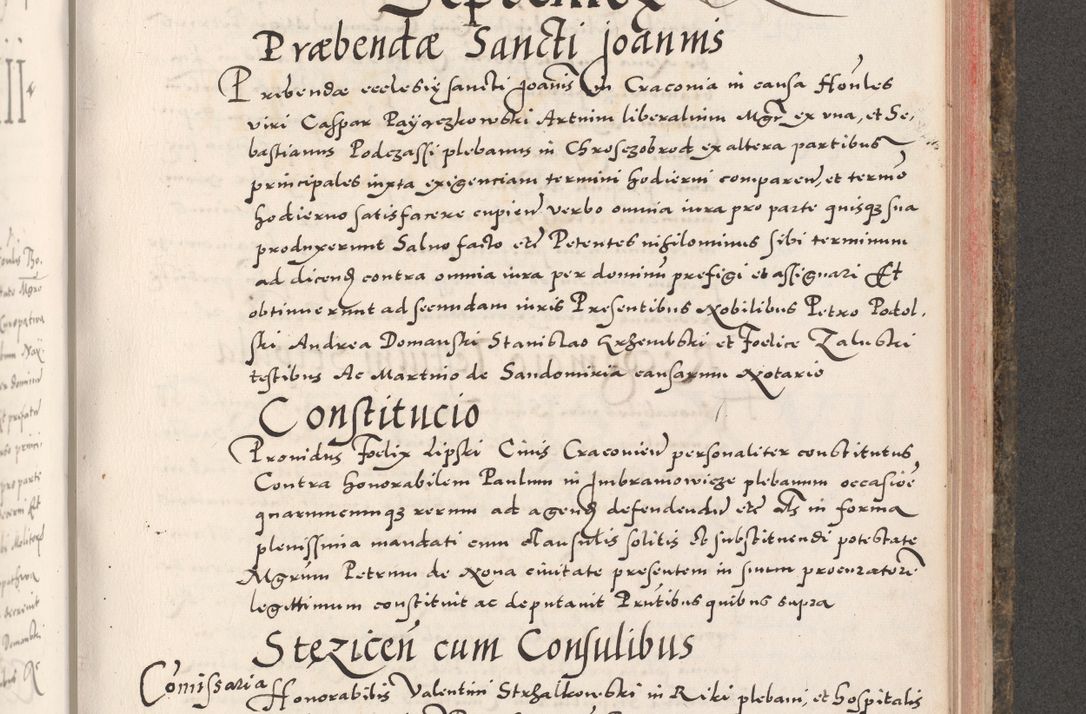 Præbendæ Sancti Joannis
Prebendæ ecclesię sancti Joanis in Craconia in causa Honles
viri Caspar Payączkowski Artium liberalium Mgr ex vna, et Se-
bastianus Podczassi plebanus in Chrosczobrod ex altera partibus
principales iuxta exigenciam termini hodierni comparen, et termo
hodierno satisfacere cupien verbo omnia iura pro parte quisqȝ sua
produxerunt Salvo facto etc Petentes nihilominus sibi terminum
ad dicend contra omnia iura per dominu prefigi et assignari Et
obtinuerunt ad secundam iuris Presentibus Nobilibus Petro Podol-
ski Andrea Domanski Stanislao Krzembski et Foelice Zaluski
testibus Ac Martino de Sandomiria causarum Notario
Constitucio
Prouidus Foelix Lipski Ciuis Cracouien personaliter constitutus
Contra honorabilem Paulum in Imbramowicze plebanum occasioe
quarumcumqȝ rerum ad agend defendendu etc als in forma
plenissima mandati cum clausulis solitis Et substituendi potestate
Mgrum Petrum de Noua ciuitate presentem in suum procuratore
legittimum constituit ac deputauit Prntibus quibus supra
Stezicen cum Consulibus
Comissaria Honorabilis Valentini Strzalkowski in Reki plebani, et hospitalis